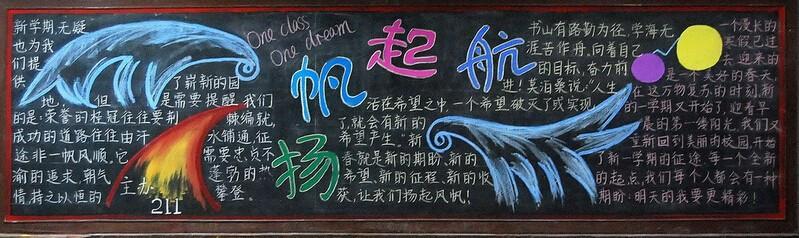 新学期,无疑
也为我
们提
供
了崭新的园
地,但是需要提醒我们
的是:荣誉的桂冠往往要荆棘编就,
成功的道路往往由汗水铺通,征
途非一帆风顺,它需要忠贞不
渝的追求,朝气蓬勃的
情,持之以恒的攀登。
主办:
211
One class
One dream
扬帆起航
书山有路勤为径,学海无
涯苦作舟。向着自己
的目标,奋力前
进!吴泊乘说:“人生
活在希望之中,一个希望破灭了或实现
了,就会有新的
希望产生。”新
春就是新的期盼、新的
希望、新的征程、新的收
获,让我们扬起风帆!
一个漫长的
寒假已过
去迎来的
是一个美好的春天,
在这万物复苏的时刻,新
的一学期又开始了,迎着早
晨的第一缕阳光,我们又
重新回到美丽的校园,开始
了新一学期的征途。每一个全新
的起点,我们每个人都会有一种
期盼:明天的我要更精彩!